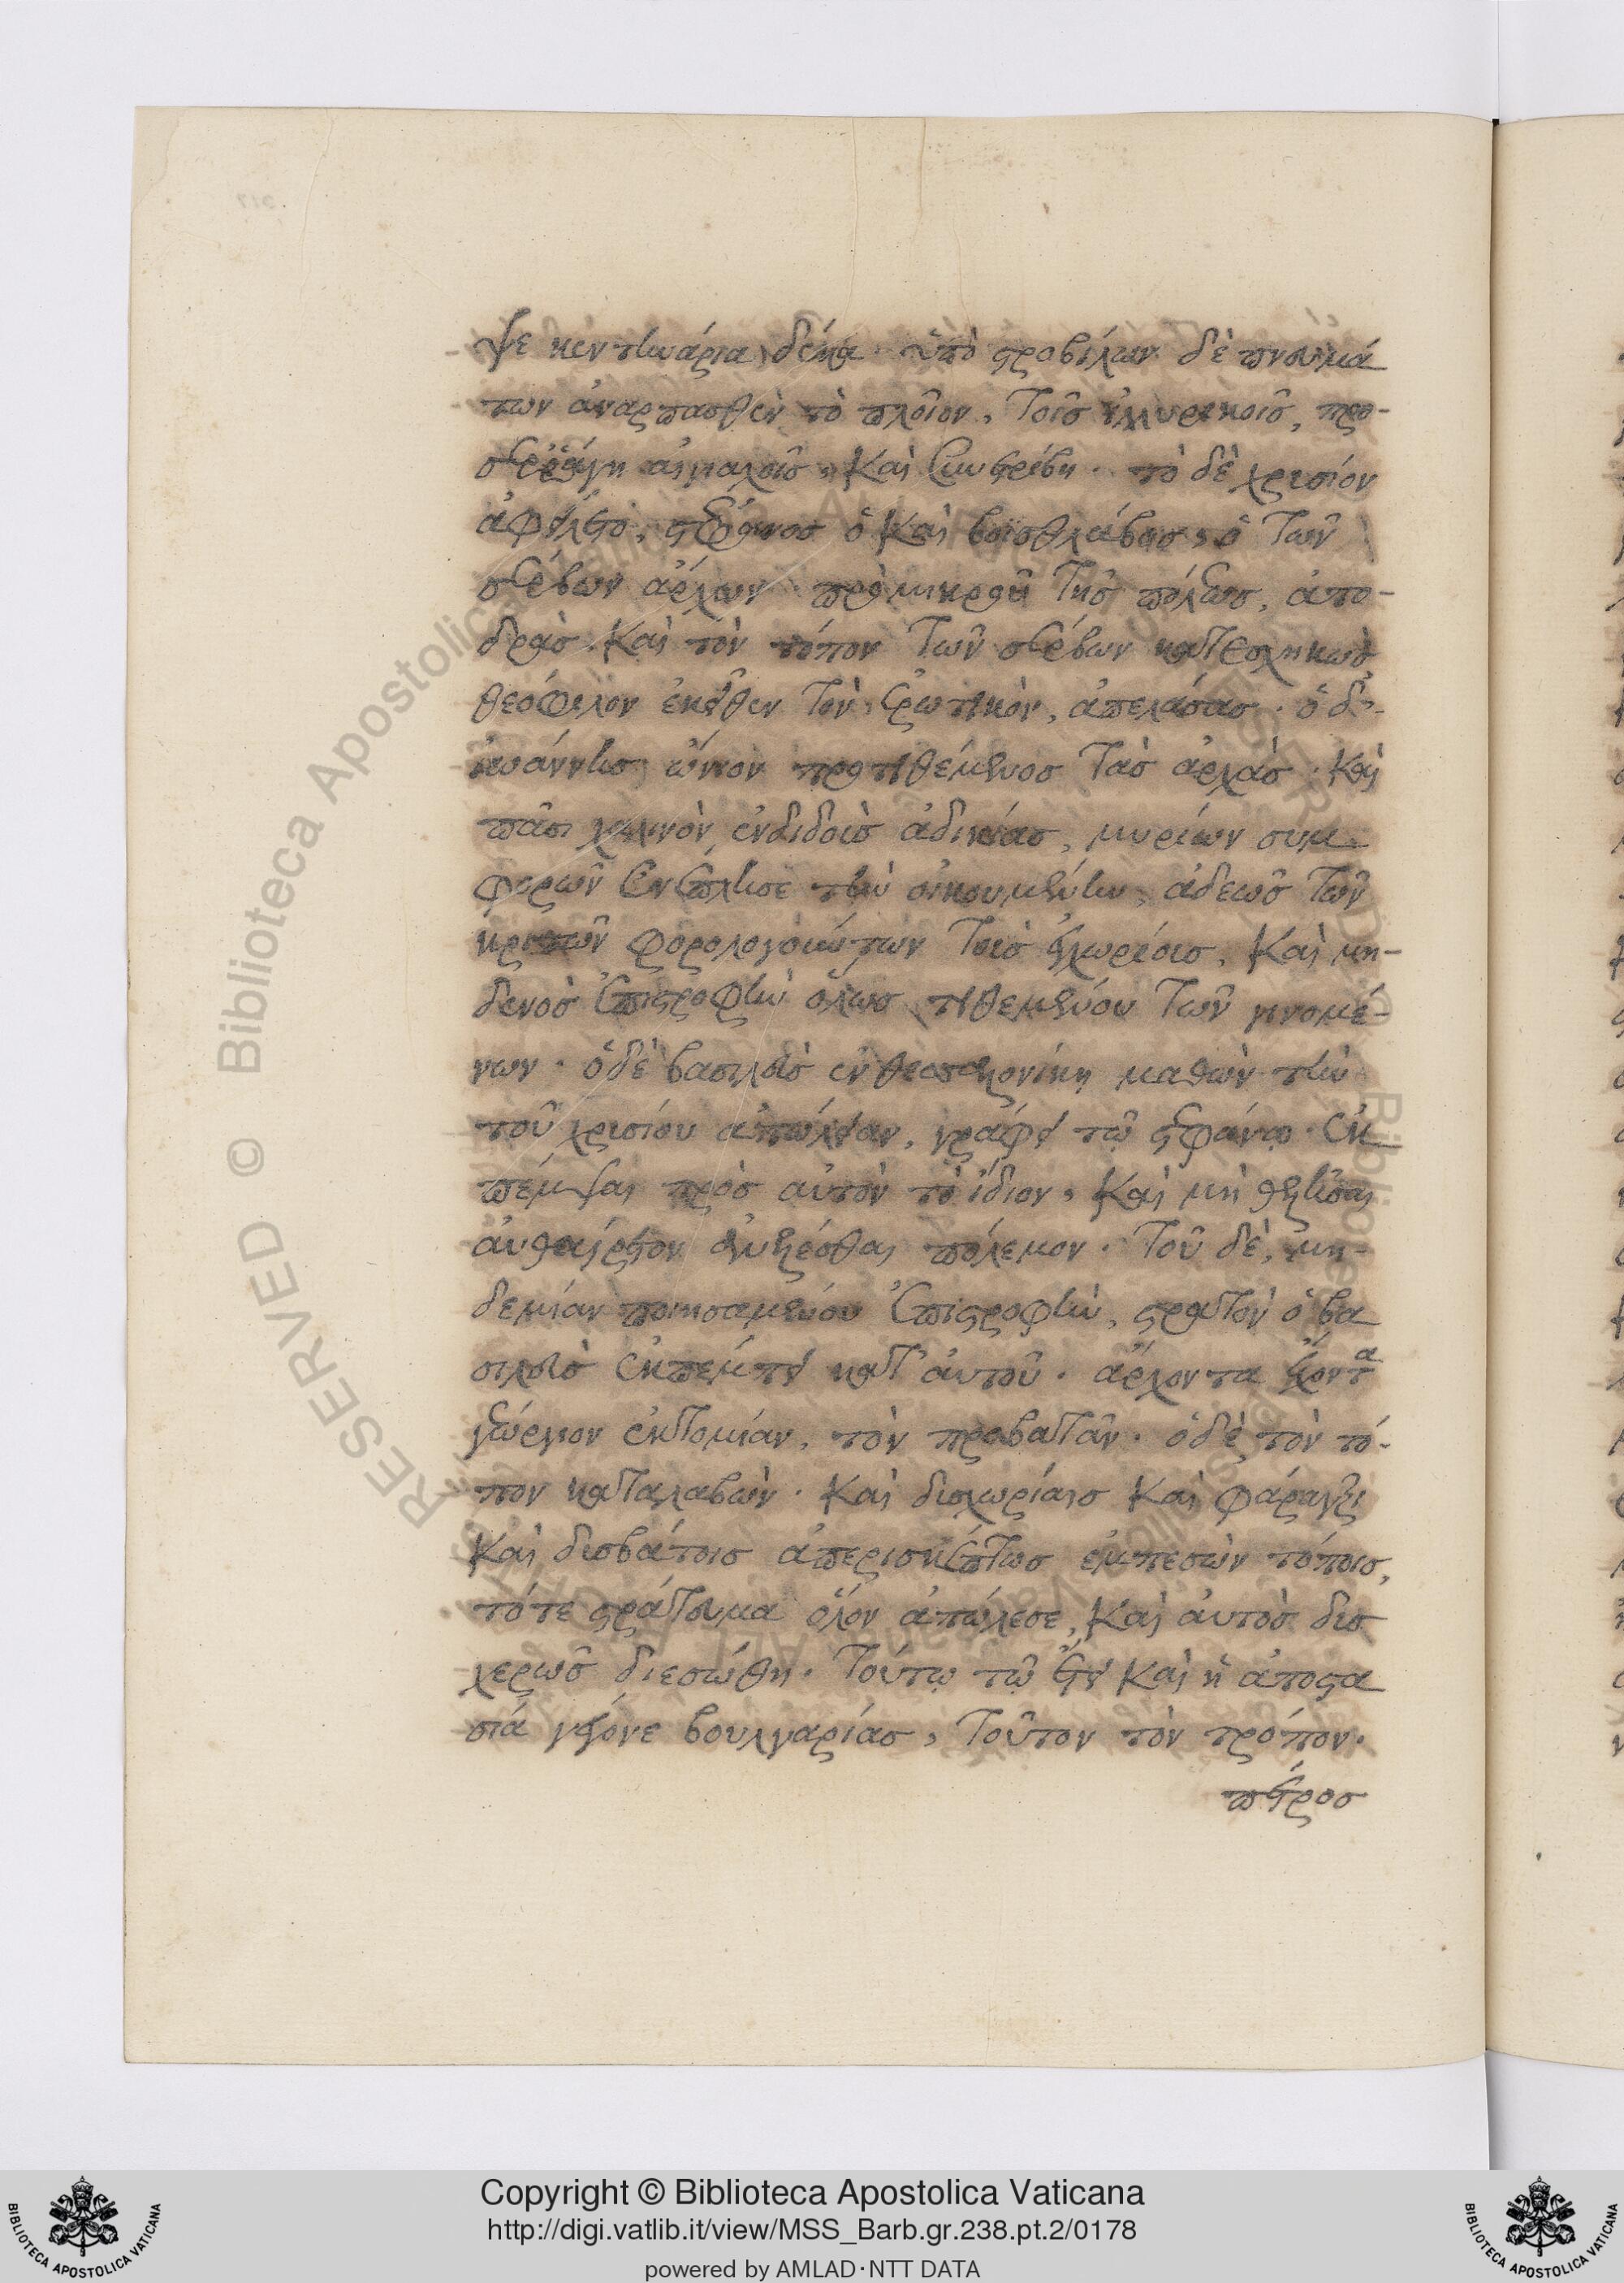 ψε κεντινάρια δέκα· ὑπὸ στροβίλων δὲ πνευμά
των ἀναρπασθὲν τὸ πλοῖον, τοῖς ἰλλυρικοῖς, προ-
σερράγη αἰγιαλοῖς, καὶ συνετρίβη· τὸ δὲ χρυσίον
ἀφείλετο, στέφανος ὁ καὶ βοϊσθλάβος, ὁ τῶν
σέρβων ἄρχων πρὸ μικροῦ τῆς πόλεως, ἀπο-
δρὰς καὶ τὸν τόπον τῶν σέρβων κατεσχηκὼς
θεόφιλον ἐκεῖθεν τὸν ἐρωτικὸν, ἀπελάσας· ὁ δ'
ἰωάννης ὤνιον προτιθέμενος τὰς ἀρχὰς· καὶ
πᾶσι χαλινὸν ἐνδιδοὺς ἀδικίας, μυρίων συμ
φορῶν ἐνέπλησε τὴν οἰκουμένην, ἀδεῶς τῶν
κριτῶν φορολογούντων τοὺς ἐγχωρίοις, καὶ μη-
δενὸς ἐπιστροφὴν ὅλως τιθεμένου τῶν γινομέ-
νων· ὁ δὲ βασιλεὺς ἐν θεσσαλονίκῃ μαθὼν τὴν
τοῦ χρυσίου ἀπώλειαν, γράφει τῷ στεφάνῳ· ἐκ
πέμψαι πρὸς αὐτὸν τὸ ἴδιον, καὶ μὴ θελῆσαι
αὐθαίρετον πόλεμον· τοῦ δὲ, μη-
δεμίαν ποιησαμένου ἐπιστροφὴν, στρατὸν ὁ βα
σιλεὺς ἐκπέμπει κατ' αὐτοῦ· ἄρχοντα ἔχοντα
γεώργιον ἐκτομίαν, τὸν προβατᾶν· ὁ δὲ τὸν τό-
πον καταλαβὼν· καὶ δισχωρίαις καὶ φάραγξι
καὶ δισβάτοις ἀπερισκέπτως ἐμπεσὼν τόποις,
τό τε στράτευμα ὅλον ἀπώλεσε, καὶ αὐτὸς δισ
χερῶς διεσώθη· τούτῳ τῷ ἔτει καὶ ἡ ἀποστα
σία γέγονε βουλγαρίας, τοῦτον τὸν τρόπον·
πέτρος
RESERVED © Biblioteca Apostolica Vaticana
Copyright © Biblioteca Apostolica Vaticana
http://digi.vatlib.it/view/MSS_Barb.gr.238.pt.2/0178
powered by AMLAD·NTT DATA
BIBLIOTECA APOSTOLICA VATICANA
BIBLIOTECA APOSTOLICA VATICANA